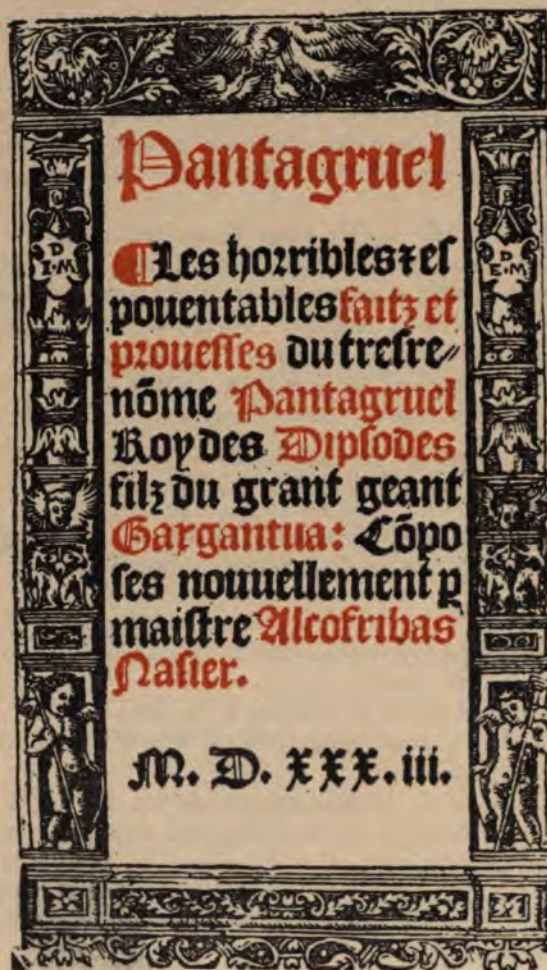 Pantagruel
¶Les horribles⁊eſ
pouentables faitz et
proueſſes du treſre⸗
nõme Pantagruel
Roy des Dipſodes
filz du grant geant
Gargantua: Cõpo
ſes nouuellement ꝑ
maiſtre Alcofribas
Naſier.
M. D. xxx. iii.
D
I·M
D
E·M